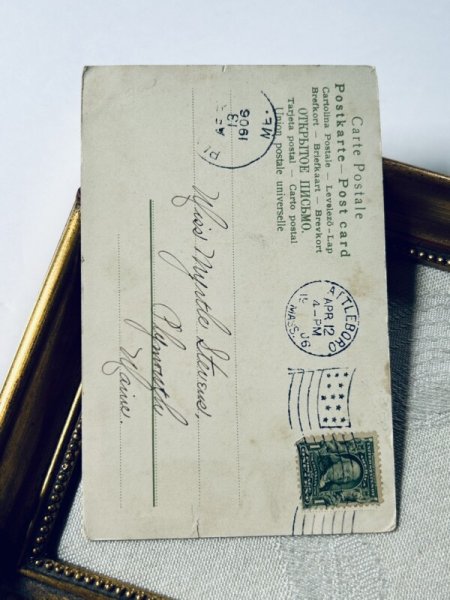 Carte Postale
Postkarte — Post card
Cartolina Postale — Levelező-Lap
Brefkort — Briefkaart — Brevkort
ОТКРЫТОЕ ПИСЬМО.
Tarjeta postal — Carto postal
Union postale universelle
TTLEBORO
APR 12
4-PM
06
MASS.
13
1906
ME.
Miss Myrtie Stevens,
Plymouth
Maine.